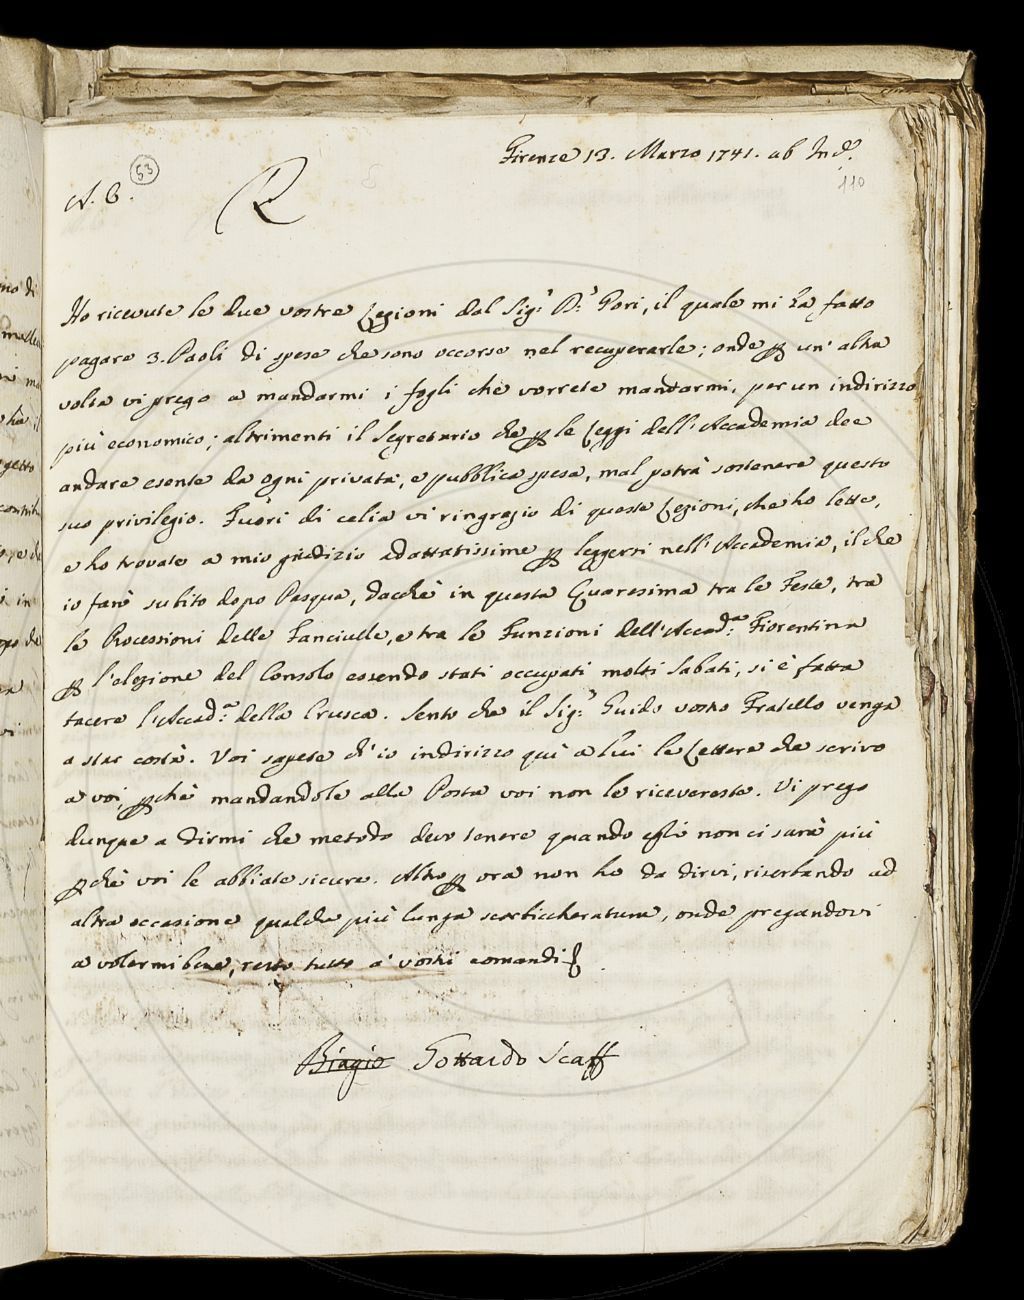 Firenze 13. Marzo 1741. ab Inc.
53
110
A. C.
R
Ho ricevute le due vostre Lezioni dal Sig.r D.r Gori, il quale mi ha fatto
pagare 3. Paoli di spese che sono occorse nel recuperarle; onde ꝑ un' altra
volta vi prego a mandarmi i fogli che vorrete mandarmi, per un indirizzo
più economico; altrimenti il Segretario che ꝑ le Leggi dell'Accademia dee
andare esente da ogni privata, e pubblica spesa, mal potrà sostenere questo
suo privilegio. Fuori di celia vi ringrazio di queste Lezioni, che ho lette,
e ho trovate a mio giudizio adattatissime ꝑ leggersi nell'Accademia, il che
io farò subito dopo Pasqua, dacchè in questa Quaresima tra le Feste, tra
le Processioni delle Fanciulle, e tra le Funzioni dell'Accad.a Fiorentina
ꝑ l'elezione del Consolo essendo stati occupati molti Sabati, si è fatta
tacere l'Accad.a della Crusca. Sento che il Sig.r Guido vostro Fratello venga
a star costà. Voi sapete ch'io indirizzo quì a lui le Lettere che scrivo
a voi, ꝑchè mandandole alla Posta voi non le ricevereste. Vi prego
dunque a dirmi che metodo devo tenere quando egli non ci sarà più
ꝑchè voi le abbiate sicure. Altro ꝑ ora non ho da dirvi, riserbando ad
altra occasione qualche più lunga scorbiccheratura, onde pregandovi
a volermi bene, resto tutto a' vostri comandi
Biagio Gottardo Scaff